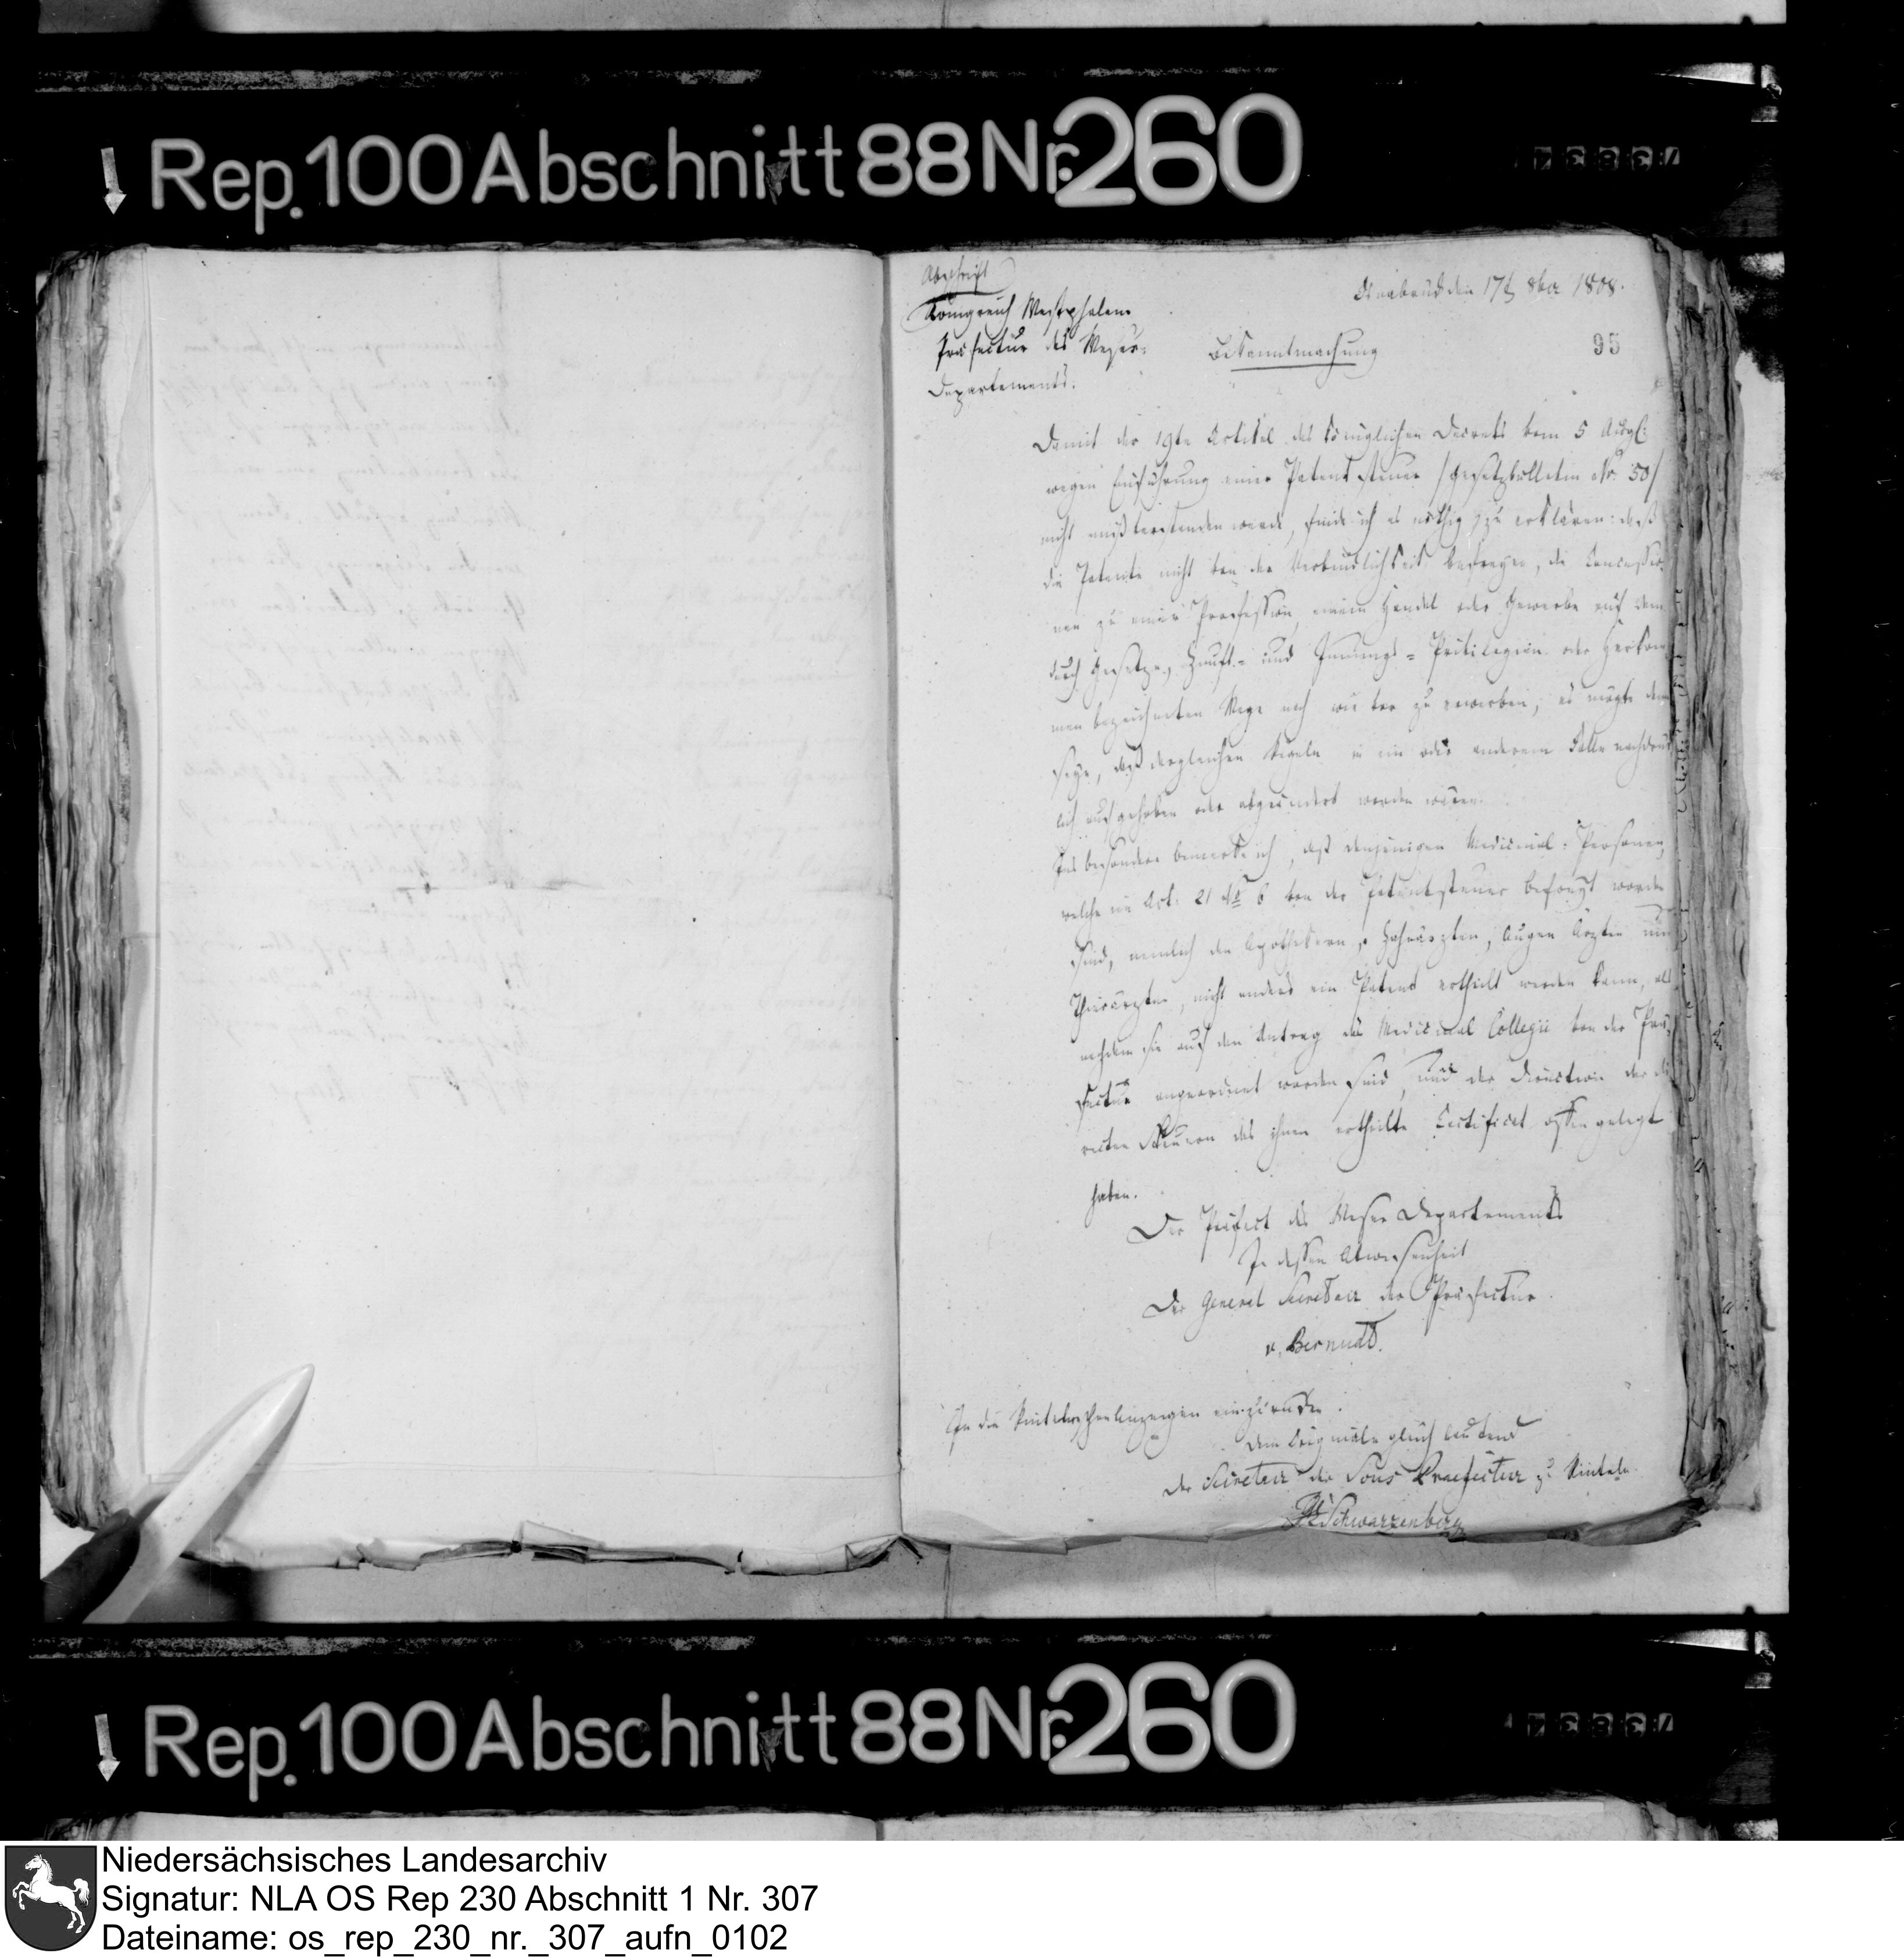 Rep. 100 Abschnitt 88 Nr. 260
Abschrift
Königreich Westphalen
Praefectur des Weser-
Departements.
Osnabrück den 17t 8ber 1808.
Bekanntmachung
95
Damit der 19te Artikel des königlichen Decrets vom 5 Aug.
wegen Einführung einer Patent Steuer /Gesetzbülletin No. 50/
nicht mißverstanden werde, finde ich es nöthig zu erklären: daß
die Patente nicht von der Verbindlichkeit befreyen, die Concessio-
nen zu einer Profession, einem Handel oder Gewerbe auf dem
durch Gesetze, Zunft- und Innungs-Privilegien oder Herkom-
men bezeichneten Wege nach wie vor zu erwerben, es mögte denn
seyn, daß dergleichen Regeln in ein oder anderem Falle nachdrück-
lich aufgehoben oder abgeändert worden wären.
Ins besondere bemerke ich, daß denjenigen Medicinal-Personen,
welche im Art. 21 No 6 von der Patentsteuer befreyt worden
sind, nemlich den Apothekern, Zahnärzten, Augen Ärzten und
Thierärzten, nicht anders ein Patent ertheilt werden kann, als
nachdem sie auf den Antrag des Medicinal Collegii von der Prä-
fectur angeordnet worden sind, und der Direction der di-
recten Steuern das ihnen ertheilte Certificat offen gelegt
haben.
Der Präfect des Weser Departements
In dessen Abwesenheit
Der General Secretair der Präfectur
v. Bernuth.
In die Rintelnschen Anzeigen einzurücken.
Dem Originale gleich lautend
Der Secretair der Sous Praefectur zu Rinteln
Schwarzenberg
Rep. 100 Abschnitt 88 Nr. 260
Niedersächsisches Landesarchiv
Signatur: NLA OS Rep 230 Abschnitt 1 Nr. 307
Dateiname: os_rep_230_nr._307_aufn_0102